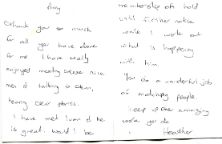 Thank you so much
for all you have done
for me I have really
enjoyed meeting some nice
men & talking to them,
hearing their stories.
I have met Ivan & he
is great. Would I be
membership off hold
until further notice
while I work out
what is happening
with him.
You do a wonderful job
of matching people.
Keep up the amazing
work you do
Heather